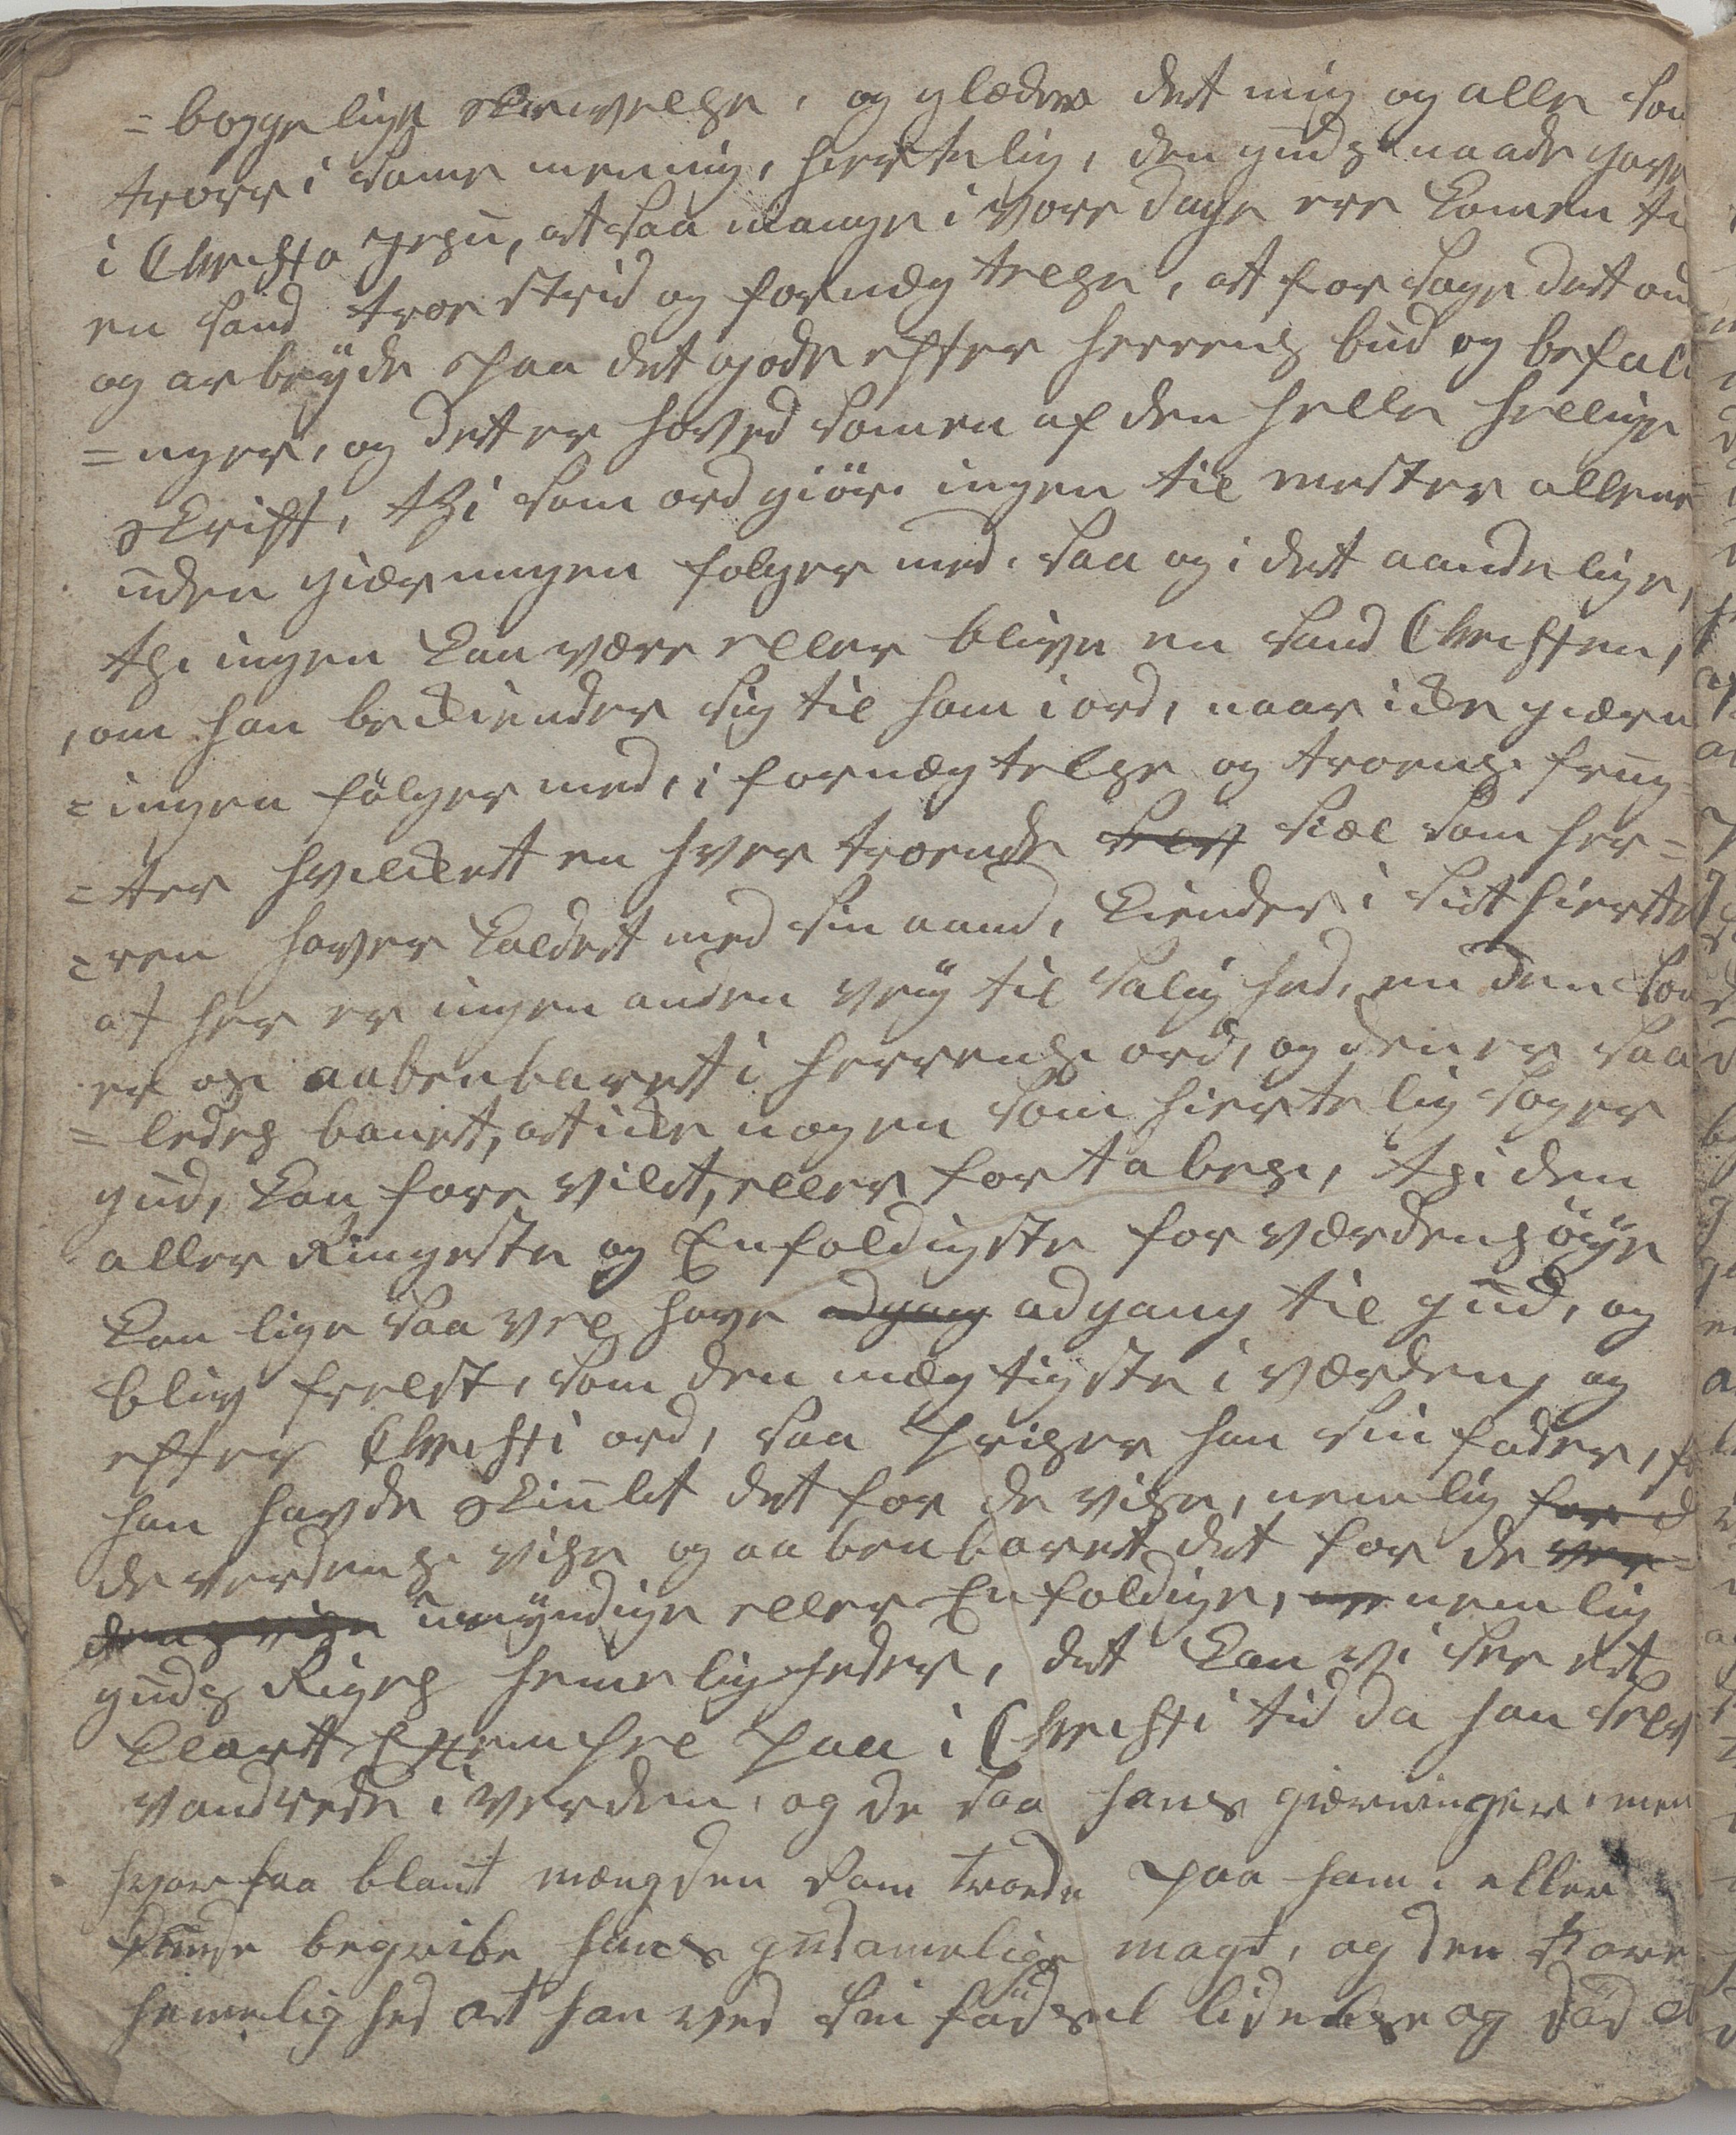 = byggelige skrivelse, og glæder det mig og alle som
troer i samme mening, hiertelig, den guds naade gave
i Christo Jesu, at saa mange i vore dage ere komen til
en sand troe strid og fornægtelse, at forsage det ond
og arbeyde paa det gode efter herrens bud og befali
= nger, og det er hoved somen af den helle hellige
skrift, thi som ord giör ingen til mester allene
uden giærningen folger med. saa og i det aandelige,
thi ingen kan være eller blive en sand Christen,
om han bekiender sig til ham i ord, naar icke giærn
= ingen fölger med, i fornægtelse og troens frug
= ter hvilcket en hver troende siæl som her=
= ren haver kaldet med sin aand, kiender i sit hierte
at her er ingen anden veÿ til salighed, en den som
er os aabenbaret i herrens ord, og den er saa
= ledes banet, at icke nogen som hiertelig soger
gud, kan fare vilt, eller fortabes, thi den
aller Ringeste og Enfoldigste for værdens öÿe
kan lige saa vel have adgang adgang til gud, og
bliv frelst, som den mægtigste i værden, og
efter Christi ord, saa priser han sin fader, f
han havde skiult det for de vise, nemlig for d
de verdens vise og aabenbaret det for de ver=
dens vise umÿndige eller Enfoldige, nemlig
guds Riges hemeligheder, det kan vi see et
klart Exempel paa i Christi tid da han selv
vandrede i verden, og de saa hans giærninger, men
hvor faa blant mængden som troede paa ham, eller
kunde begribe hans gudomelige magt, og den store
hemelighed at han ved sin födsel lidelse og död